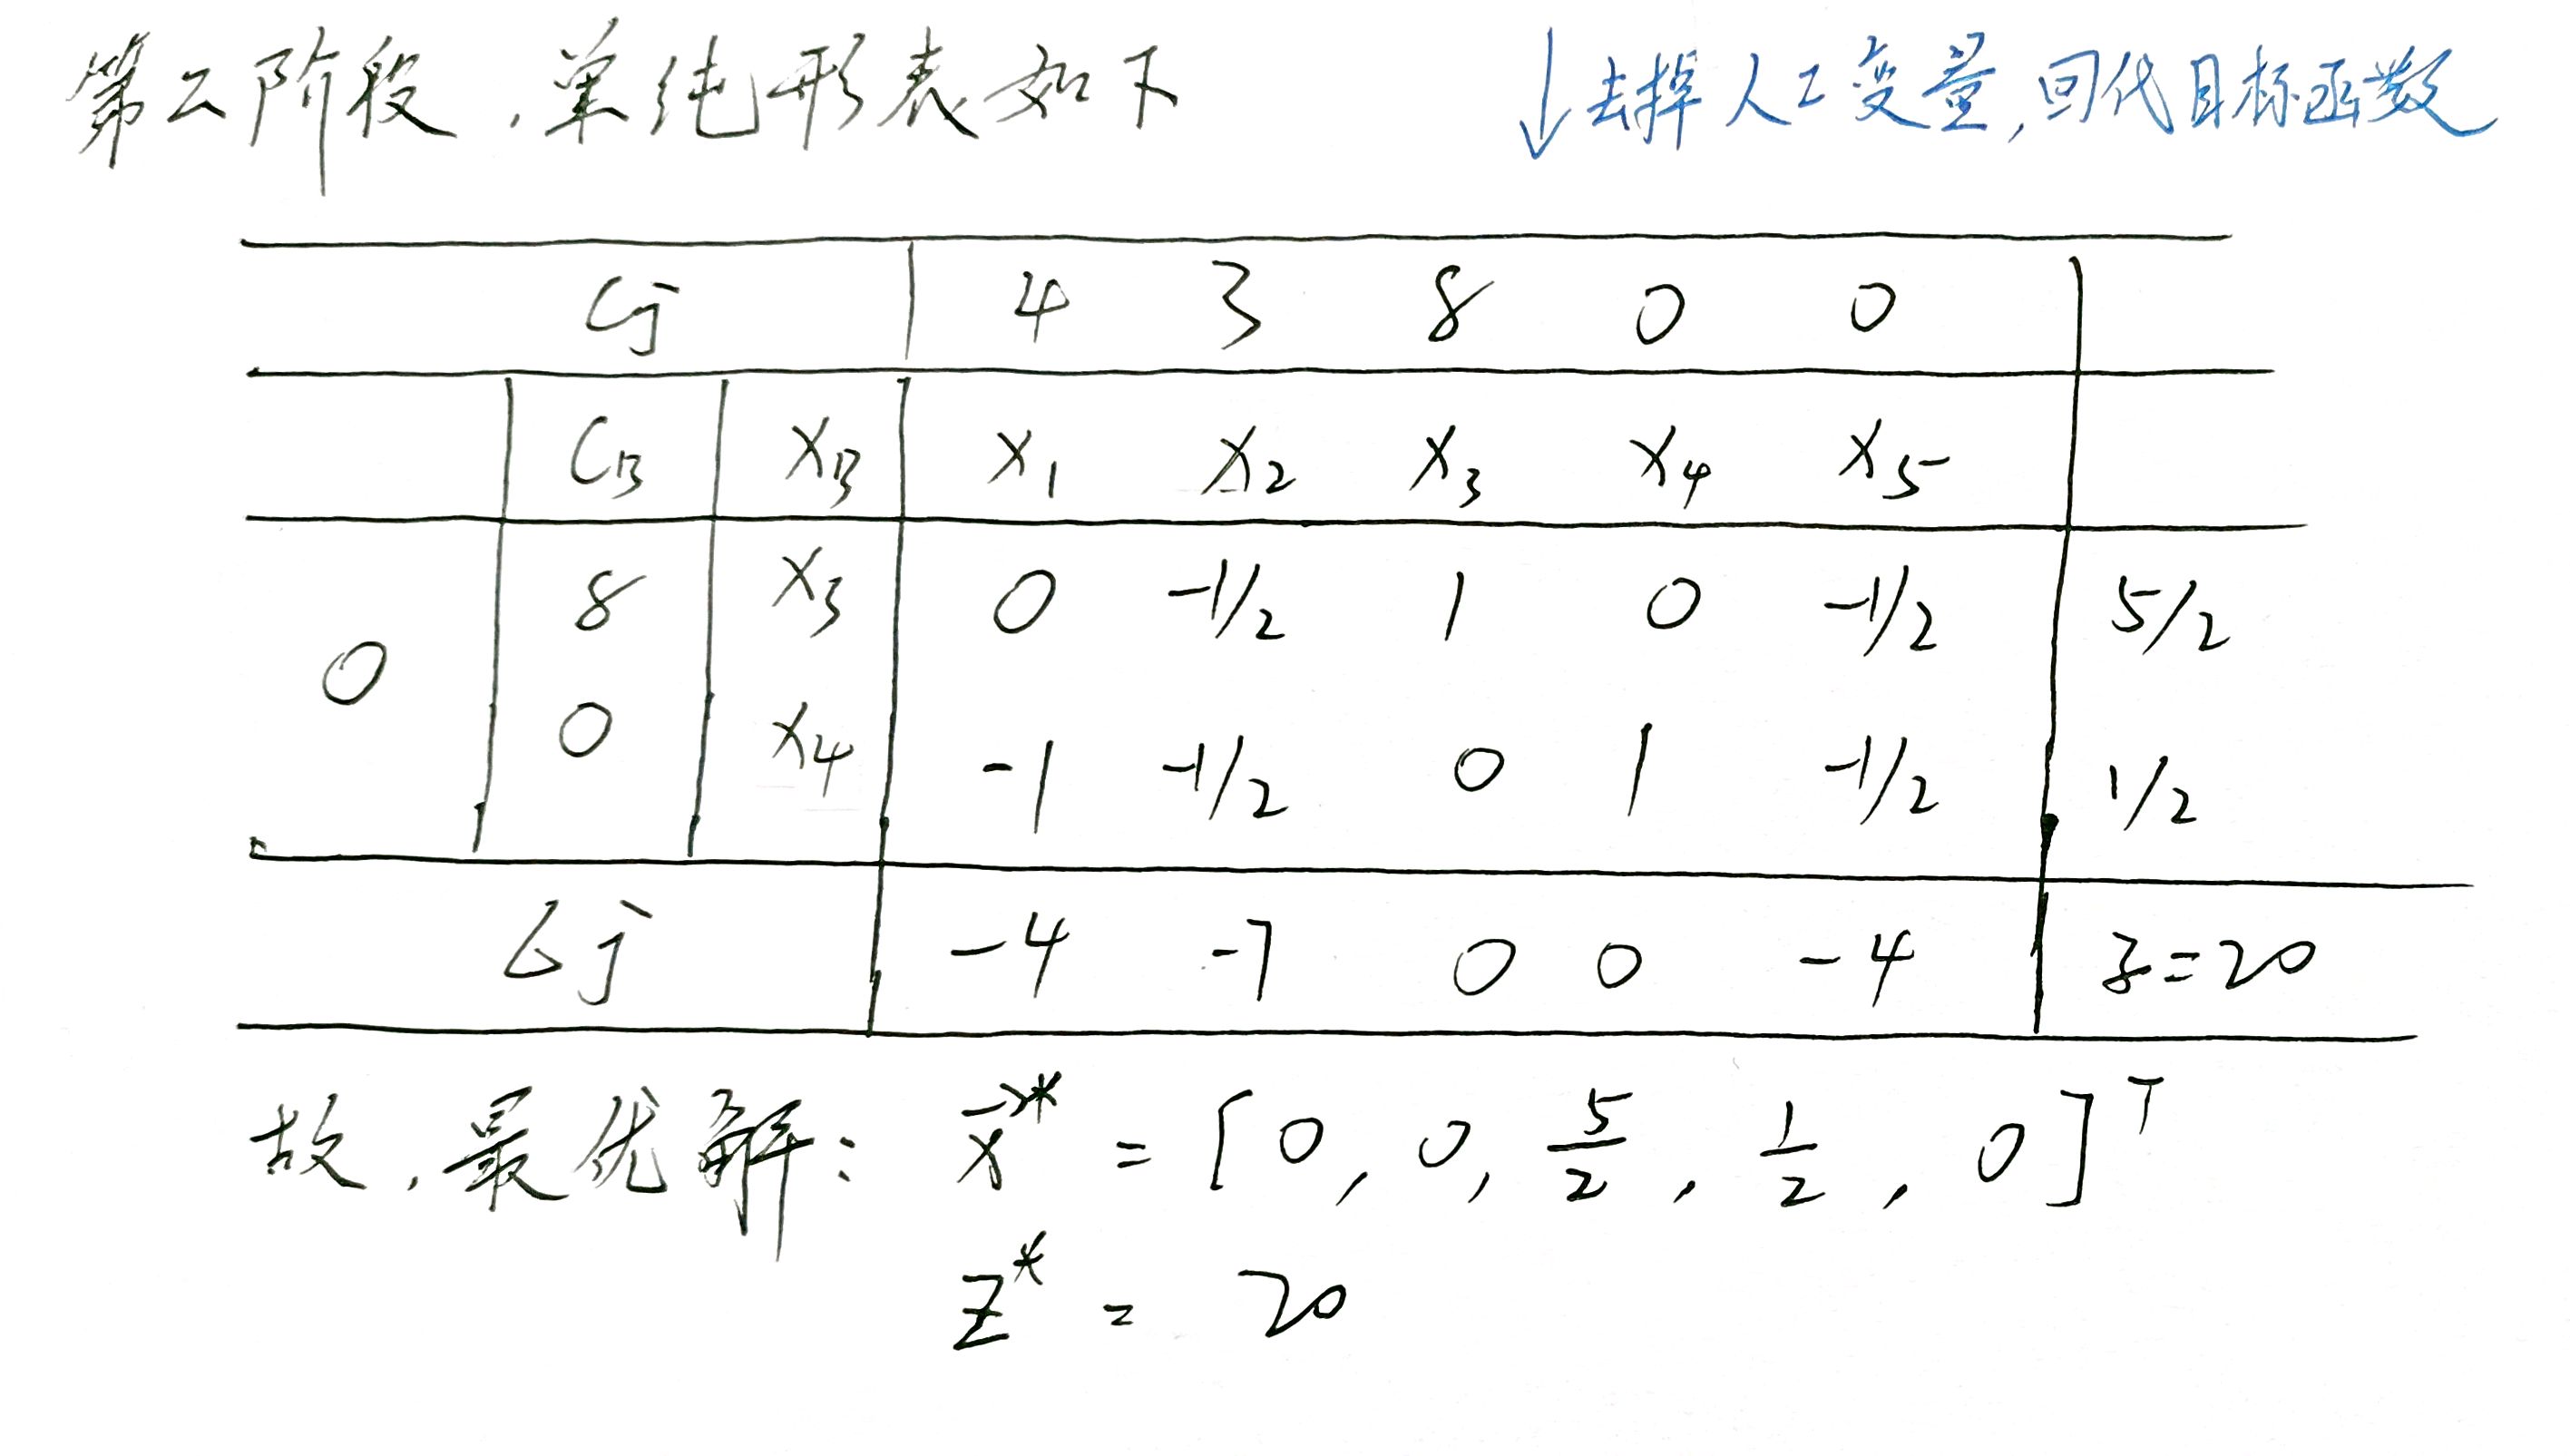 第二阶段,单纯形表如下
↓去掉人工变量,回代目标函数
Cj 4 3 8 0 0
CB XB x1 x2 x3 x4 x5
0 8 x3 0 -1/2 1 0 -1/2 5/2
0 x4 -1 -1/2 0 1 -1/2 1/2
σj -4 -7 0 0 -4 z=20
故,最优解: x⃗* = [0, 0, 5/2, 1/2, 0]ᵀ
z* = 20